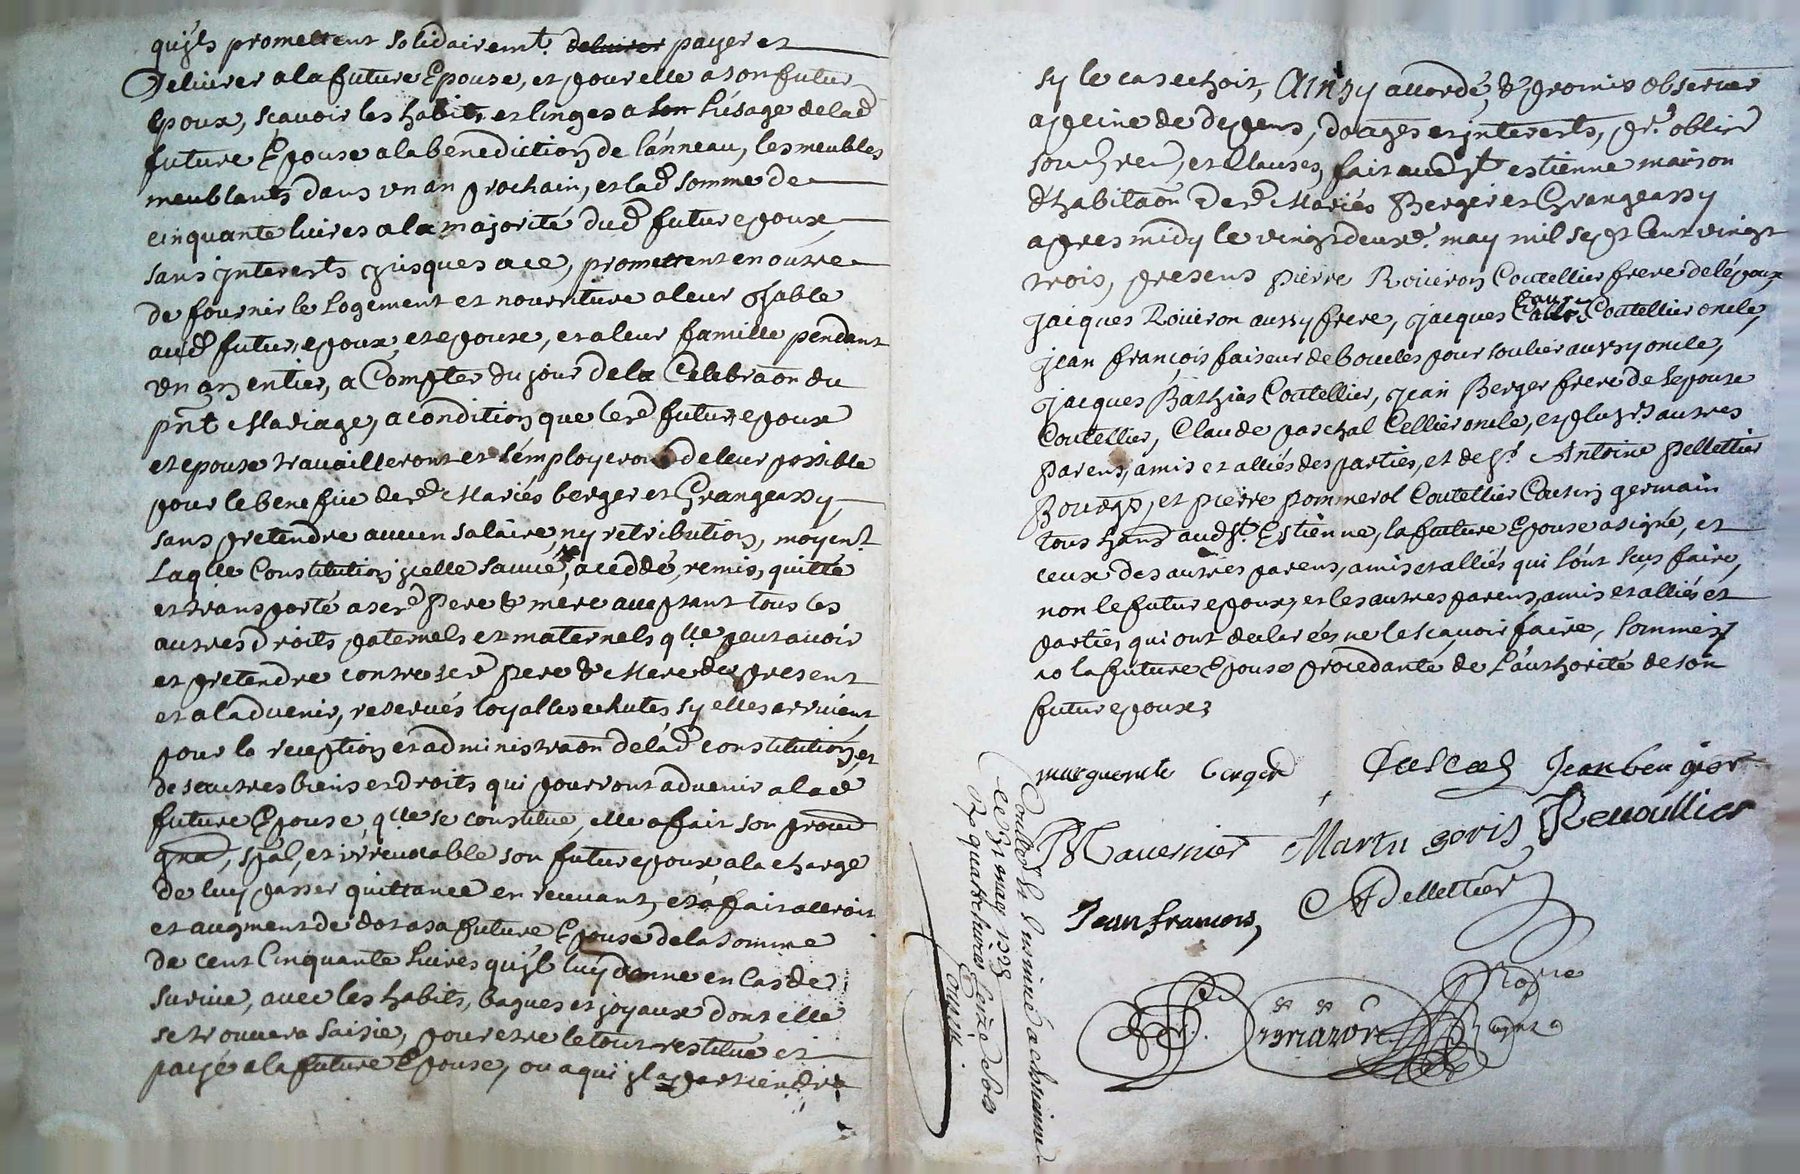 qu'jls promettent solidairemt. delivrer payer et
Delivrer a la future Epouse, et pour elle a son futur
Epoux, sçavoir les habits et linges a son l'úsage de lad
future Epouse a la benediction de l'ánneau, les meubles
meublants dans vn an prochain, et lad somme de
cinquante livres a la majorité dud futur epoux
sans jnterests jusques a ce, promettent en outre
de fournir le logement et nourriture a leur table
aud futur epoux, et epouse, et a leur famille pendant
vn an entier, a Compter du jour de la Celebraon du
pnt Mariage, a condition que lesd futur epoux
et epouse travailleront et s'émployeront de leur possible
pour le benefice desd Mariés berger et Grangeassy,
sans pretendre aucun salaire ny retribution, moyent.
Laqlle Constitution jcelle a ceddé, remis, quitté
et transporté a sesd Pere & mere acceptant tous les
autres droits paternels et maternels qlle peut avoir
et pretendre contre sesd Pere & Mere de present
et a l'advenir, reservés loyalles echutes sy elles arrivent,
pour la reception et administraon de lad constitution, et
des autres biens et droits qui pourront advenir a lad
future Epouse, qlle se constitue, elle a fait son procur
gnal, spal, et irrevocable son futur epoux a la charge
de luy passer quittance en recevant, et a fait accroit
et augment de dot a sa future Epouse de la somme
de cent Cinquante livres qu'jl luy donne en cas de
survie, avec les habits, bagues et joyaux dont elle
se trouvera saisie, pour etre le tout restitué et
payé a la future Epouse, ou a qui jl appartiendra
sy le cas echoit, Ainsy accordé, & promis observer
a peine de depens, domages et jnterests, pr. obliger
soubm et Clauses, fait aud St. estienne maison
d'habitaon desd Mariés Berger et Grangeassy
apres midy le vingt deuxe. may mil sept Cent vingt
trois, presens pierre Roüeron Coutellier frere de l'époux,
jacques Roüeron aussy frere, jacques Coutellier oncle,
jean françois faiseur de boucles pour soulier aussy oncle,
jacques Bathias Coutellier, Jean Berger frere de l'epouse
Coutellier, Claude paschal Cellier oncle, et plusrs autres
parens, amis et alliés des parties, et de sr. Antoine pellettier
Bourgs, et pierre pommerol Coutellier Cousin germain
tous hans aud St. Estienne, la future Epouse a signé, et
ceux des autres parens, amis et alliés qui l'ont sceu faire,
non le futur epoux, et les autres parens, amis et alliés et
parties qui ont declarées ne le sçavoir faire, sommés
la future Epouse procedante de l'authorité de son
futur epoux;
marguerite berger Pascal Jean bergier
Mavernier Martin goris Revoullier
Jean francois, APellettier